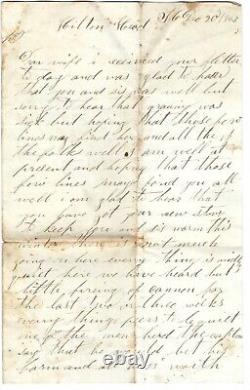 Hilton Head S C Dec 20 186
Dear wife i received your letter
to day and was glad to hear
that you and sis was well but
sorry to hear that granny was
sick but hoping that those few
lines may find her and all the
folks well i am well at
present and hoping that those
few lines may find you all
well i am glad to hear that
you have got your new stove
to keep you and sis warm this
winter there is not much
going on here every thing is
quiet here we have heard but
little firing of cannon for
the last two or three weeks
every thing seems to be quiet
of the men here the captain
say that he sold his
farm and at